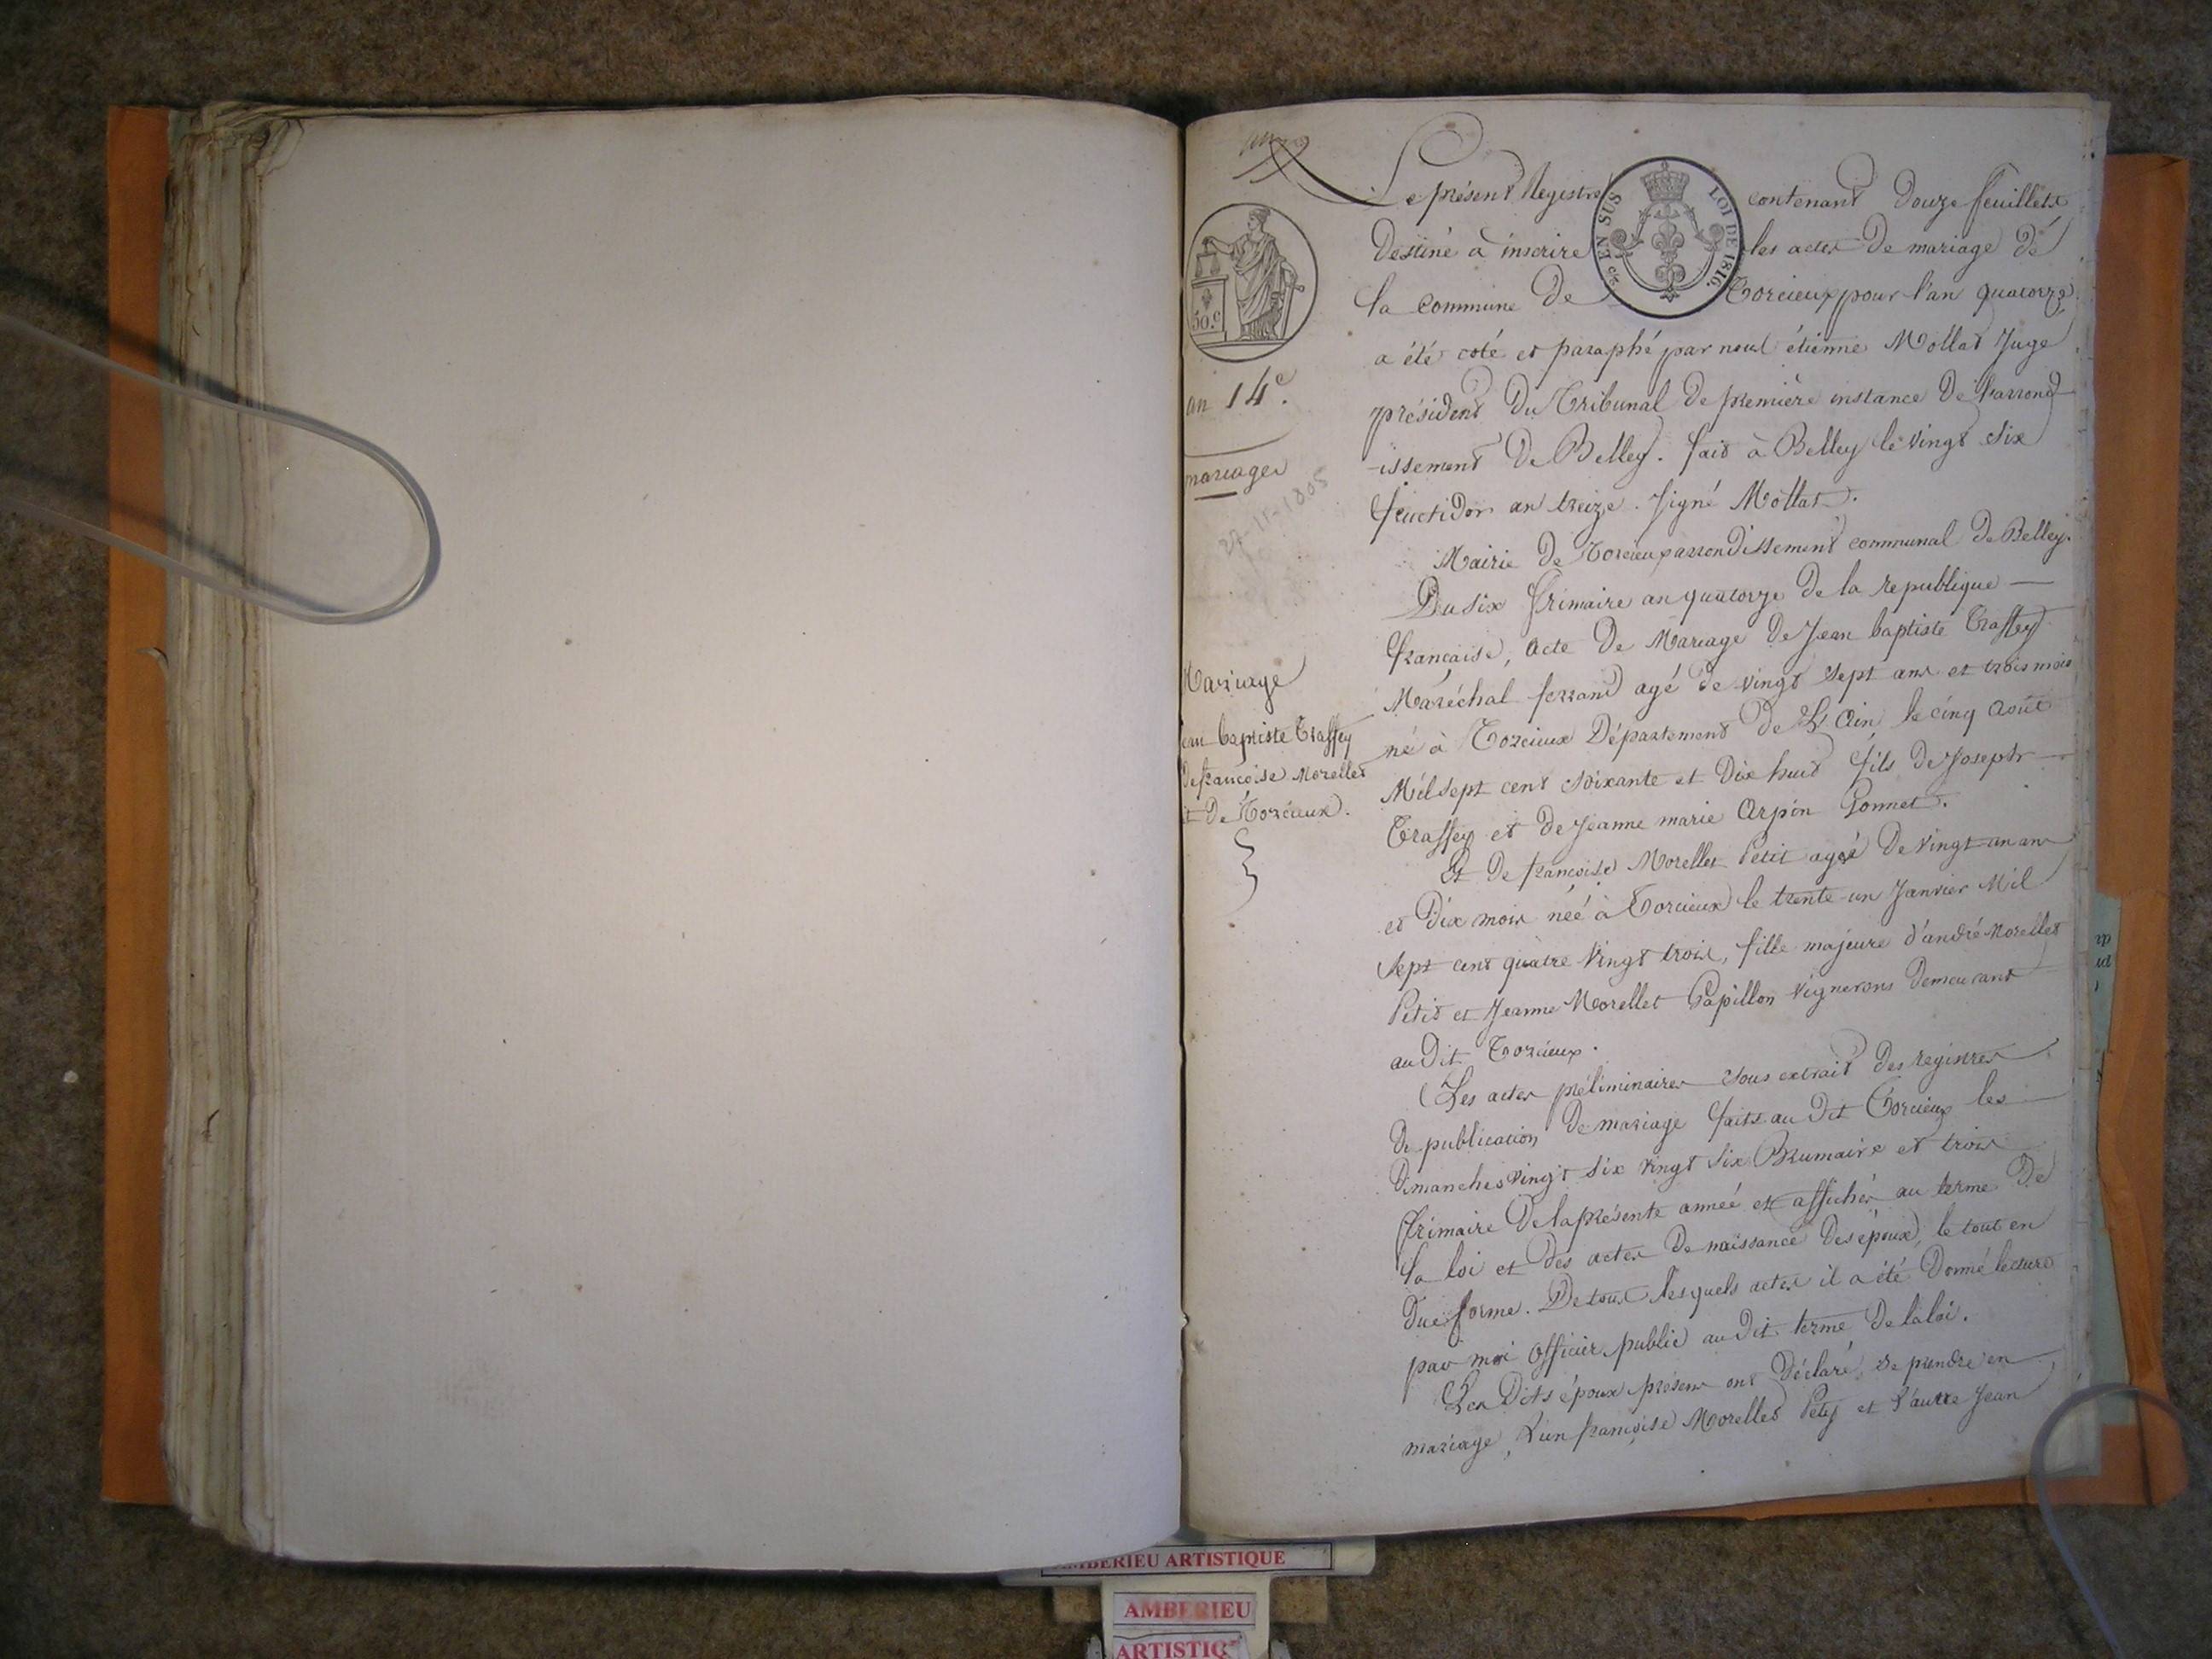 Le présent Registre contenant Douze feuillets
Destiné à inscrire les actes De mariage de
la Commune De Torcieux pour l'an quatorze
a été coté et paraphé par nous étienne Mollat Juge
président Du Tribunal De première instance De l'arrond
-issement De Belley. fait à Belley le vingt six
fructidor an treize. signé Mollat.
EN SUS
LOI DE 1816.
50.c
an 14e.
mariages
27-11-1805
Mairie de Torcieux arrondissement communal De Belley.
Du six frimaire an quatorze De la republique —
française, acte De Mariage De Jean baptiste Traffey
Maréchal ferrand agé de vingt sept ans et trois mois
né à Torcieux Département De L'Ain le cinq Août
Mil sept cent soixante et Dix huit fils De Joseph —
Traffey et de Jeanne marie Arpin Gonnet.
Et De françoise Morellet Petit agée De vingt un ans
et Dix mois née à Torcieux le trente-un Janvier Mil
sept cent quatre vingt trois, fille majeure d'andré Morellet
Petit et Jeanne Morellet Papillon vignerons demeurant
au Dit Torcieux.
Les actes préliminaires sous extrait des registres
De publication De mariage faits au Dit Torcieux les
Dimanches vingt six vingt six Brumaire et trois
frimaire De la présente année et affichés au terme De
la loi et des actes De naissance Des époux, le tout en
Due forme. De tous lesquels actes il a été Donné lecture
par moi Officier public au Dit terme De la loi.
Les Dits époux présens ont Déclaré se prendre en
mariage, L'un françoise Morellet Petit et l'autre Jean
Mariage
ean baptiste Traffey
De françoise Morellet
it De Torcieux.
AMBERIEU ARTISTIQUE
AMBERIEU
ARTISTIQ